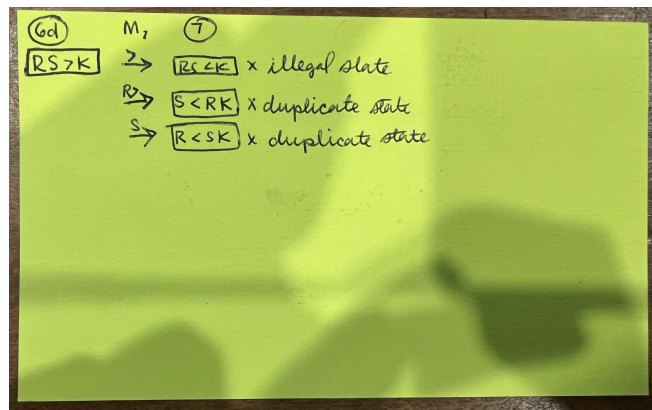 6d M, 7
RS>K > → RS<K x illegal state
R> → S<RK x duplicate state
S → R<SK x duplicate state